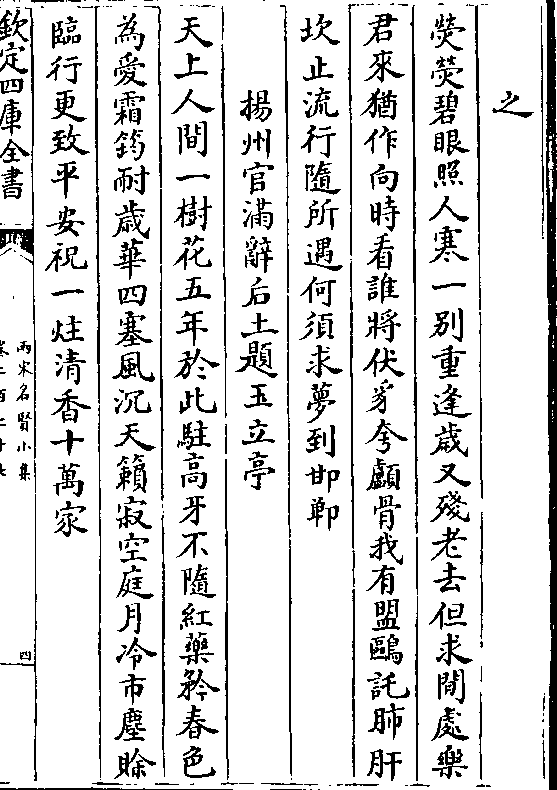 之
熒熒碧眼照人寒一別重逢歲又殘老去但求閒處樂
君來猶作向時看誰將伏豸夸顱骨我有盟鷗託肺肝
坎止流行隨所遇何須求夢到邯鄲
揚州官滿辭后土題玉立亭
天上人間一樹花五年於此駐高牙不隨紅藥矜春色
為愛霜筠耐歲華四塞風沉天籟寂空庭月冷市塵賒
臨行更致平安祝一炷清香十萬家
欽定四庫全書
兩宋名賢小集
四